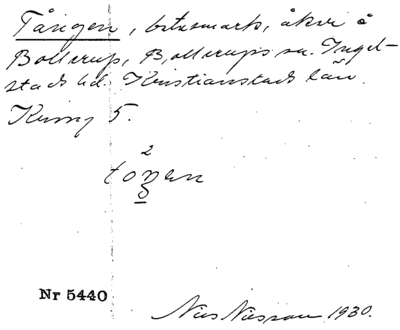 Tången, betesmark, åker å
Bollerup, Bollerups sn. Ingel-
stads hd. Kristianstads län
5.
2
Nr 5440
Nils Nilsson 1930.